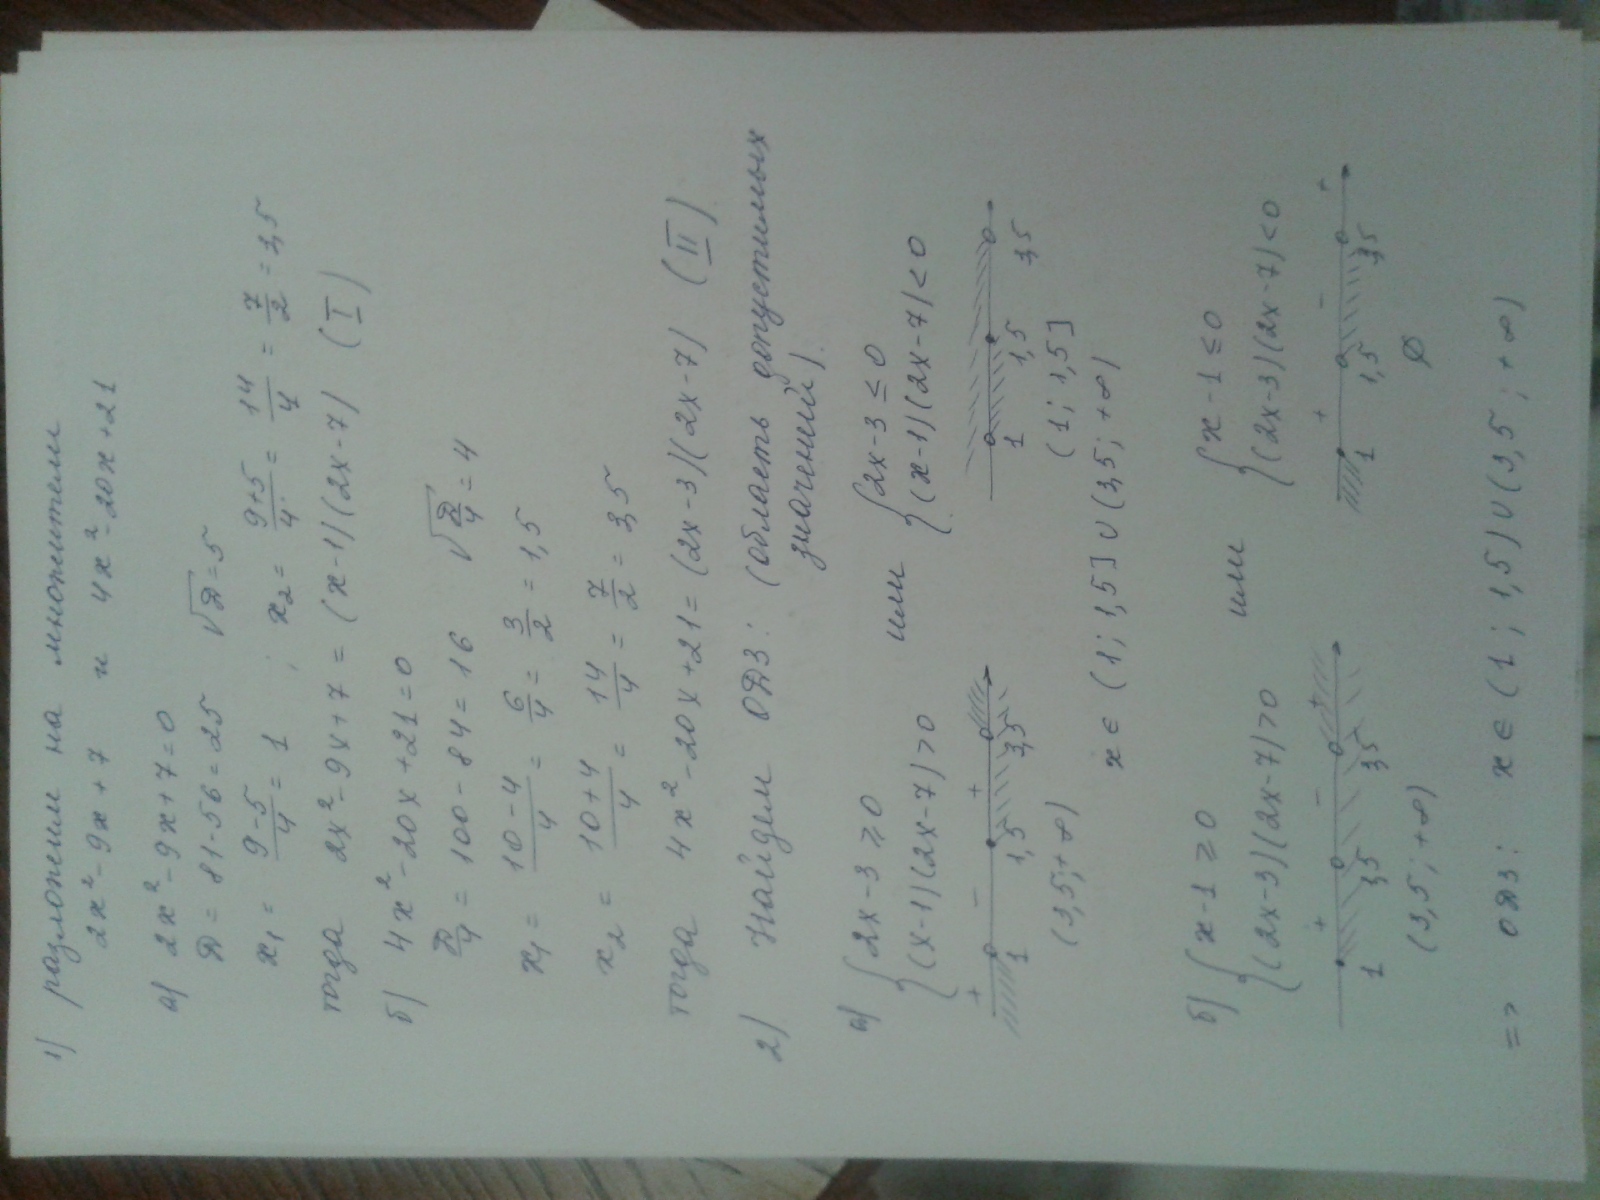 1) разложим на множители
2x² - 9x + 7 и 4x² - 20x + 21
а) 2x² - 9x + 7 = 0
D = 81 - 56 = 25 √D = 5
x₁ = (9-5)/4 = 1 ; x₂ = (9+5)/4 = 14/4 = 7/2 = 3,5
тогда 2x² - 9x + 7 = (x-1)(2x-7) (I)
б) 4x² - 20x + 21 = 0
D/4 = 100 - 84 = 16 √(D/4) = 4
x₁ = (10-4)/4 = 6/4 = 3/2 = 1,5
x₂ = (10+4)/4 = 14/4 = 7/2 = 3,5
тогда 4x² - 20x + 21 = (2x-3)(2x-7) (II)
2) Найдем ОДЗ: (область допустимых
значений).
а) { 2x-3 ≥ 0 или { 2x-3 ≤ 0
(x-1)(2x-7) > 0 (x-1)(2x-7) < 0
+ - +
1 1,5 3,5 1 1,5 3,5
(3,5; +∞) (1; 1,5]
x ∈ (1; 1,5] ∪ (3,5; +∞)
б) { x-1 ≥ 0 или { x-1 ≤ 0
(2x-3)(2x-7) > 0 (2x-3)(2x-7) < 0
+ - + + - +
1 3,5 3,5 1 1,5 3,5
(3,5; +∞) ∅
=> ОДЗ: x ∈ (1; 1,5) ∪ (3,5; +∞)